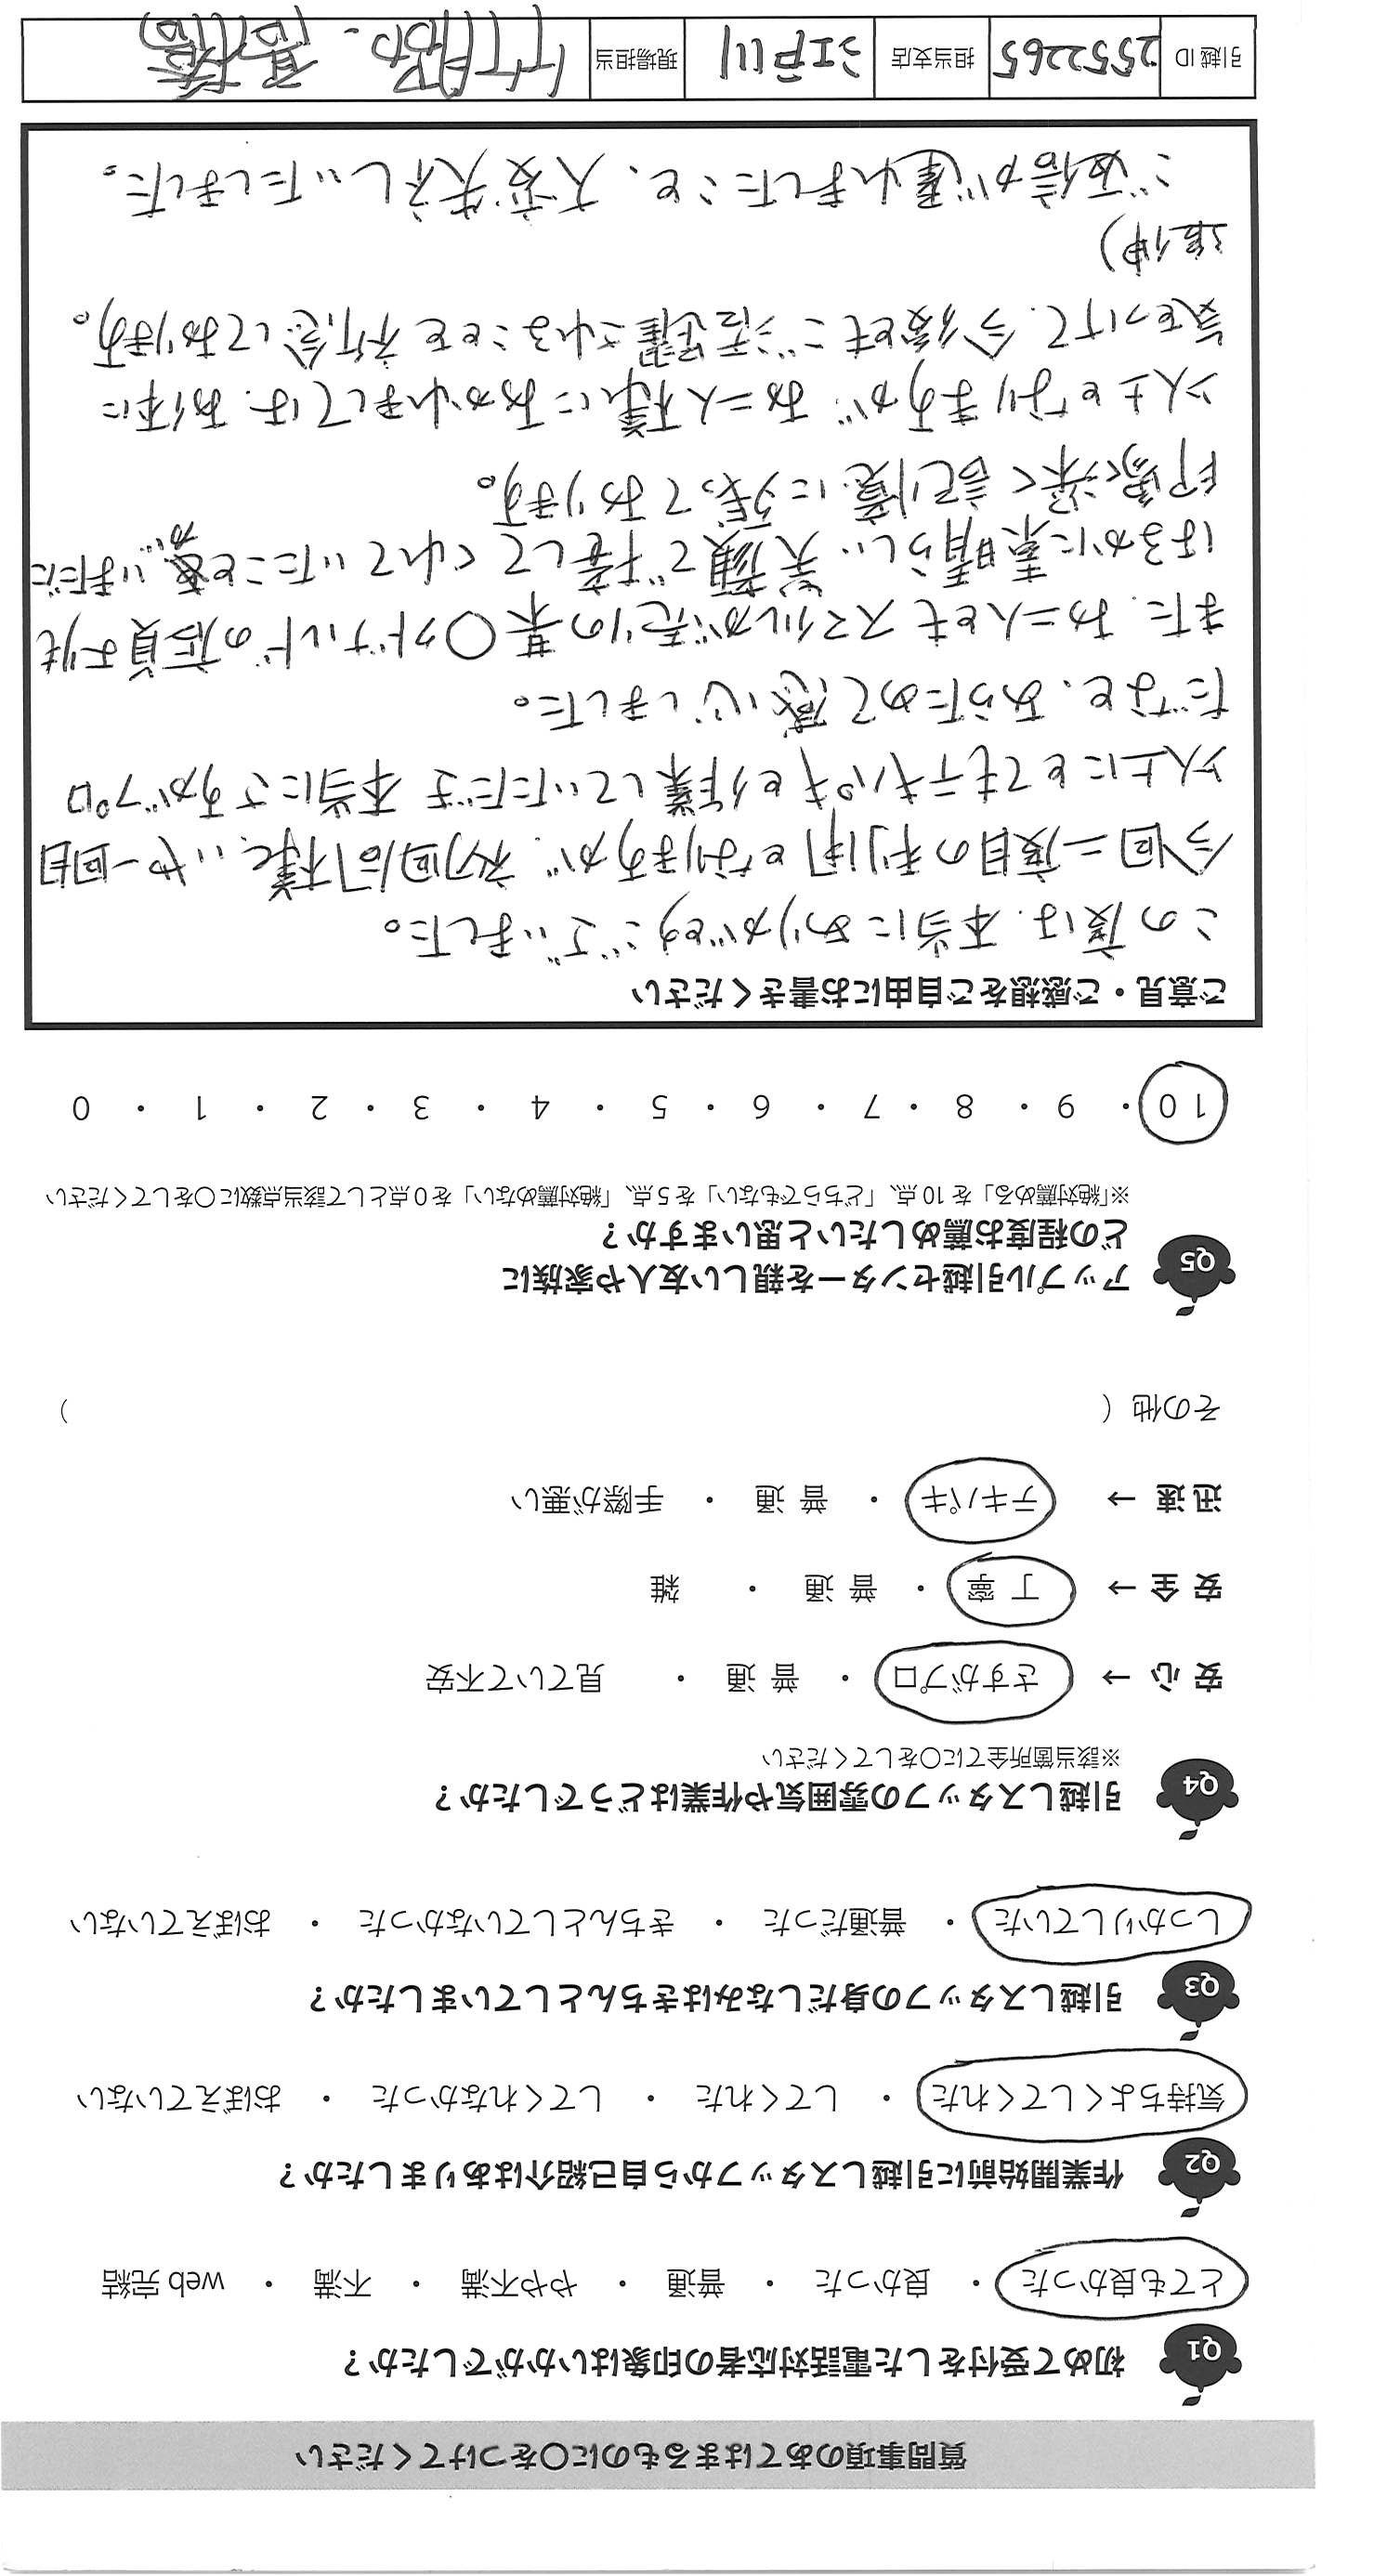 質問事項のあてはまるものに〇をつけてください
Q1 初めて受付をした電話対応者の印象はいかがでしたか？
とても良かった ・ 良かった ・ 普通 ・ やや不満 ・ 不満 ・ web 完結
Q2 作業開始前に引越しスタッフから自己紹介はありましたか？
気持ちよくしてくれた ・ してくれた ・ してくれなかった ・ おぼえていない
Q3 引越しスタッフの身だしなみはきちんとしていましたか？
しっかりしていた ・ 普通だった ・ きちんとしていなかった ・ おぼえていない
Q4 引越しスタッフの雰囲気や作業はどうでしたか？
※該当箇所全てに〇をしてください
安 心 → さすがプロ ・ 普 通 ・ 見ていて不安
安 全 → 丁 寧 ・ 普 通 ・ 雑
迅 速 → テキパキ ・ 普 通 ・ 手際が悪い
その他（ ）
Q5 アップル引越センターを親しい友人や家族に
どの程度お薦めしたいと思いますか？
※「絶対薦める」を 10 点、「どちらでもない」を 5 点、「絶対薦めない」を 0 点として該当点数に〇をしてください
10 ・ 9 ・ 8 ・ 7 ・ 6 ・ 5 ・ 4 ・ 3 ・ 2 ・ 1 ・ 0
ご意見・ご感想をご自由にお書きください
この度は、本当にありがとうございました。
今回二度目の利用となりますが、初回同様、いや一回目
以上にとてもテキパキと作業していただき 本当にさすがプロ
だなと、あらためて感心しました。
また、お二人ともスマイルが売りの某〇クドナルドの店員よりも
はるかに素晴らしい笑顔で接してくれていたことが、いまだに
印象深く記憶に残っております。
以上となりますが、お二人様におかれましては、お体に
気をつけて、今後ともご活躍されることを祈念しております。
追伸)
ご返信が遅れましたこと、大変失礼いたしました。
引越 ID 2552265 担当支店 江戸川 現場担当 竹服